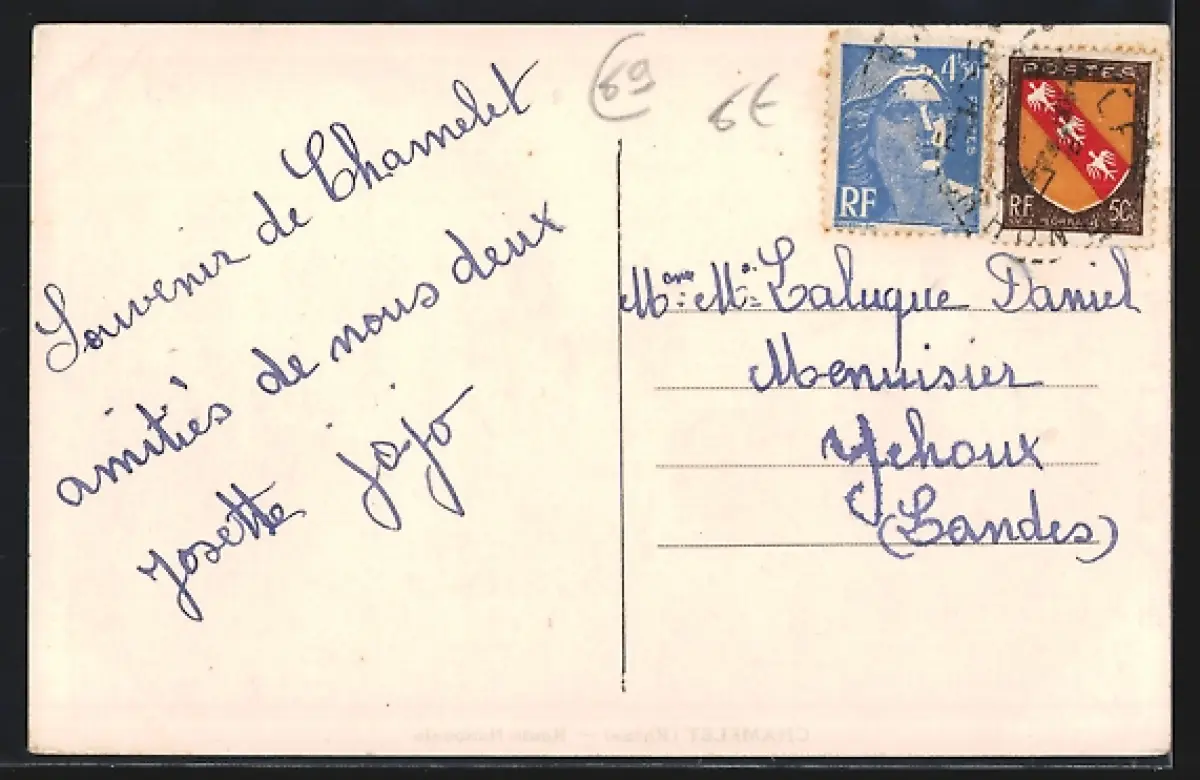 Souvenir de Chamelet
amitiés de nous deux
Josette jojo
69
6€
4F50
POSTES
RF
POSTES
RF
50c
Mme Mr Laluque Daniel
Menuisier
Ychoux
(Landes)
CHAMELET (Rhône) — Route Nationale